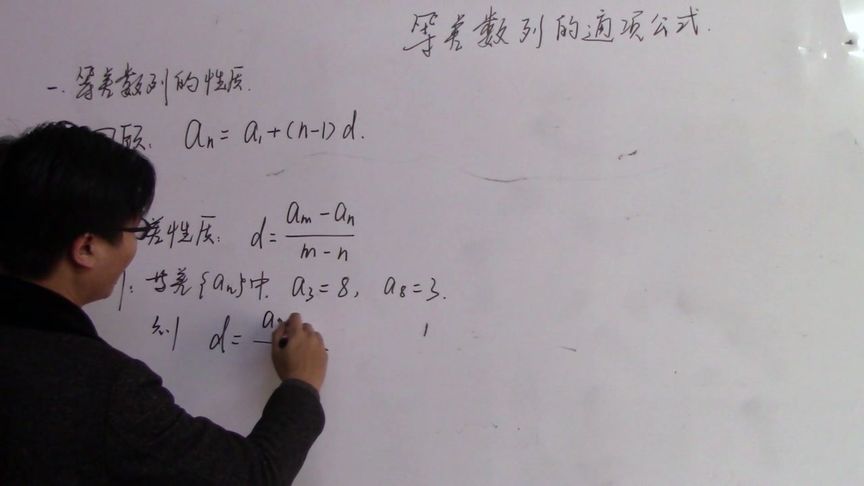 等差数列的通项公式.
一.等差数列的性质.
顾: aₙ = a₁+(n-1)d.
差性质: d= (aₘ-aₙ)/(m-n)
: 等差{aₙ}中. a₃=8, a₈=3.
则 d= a